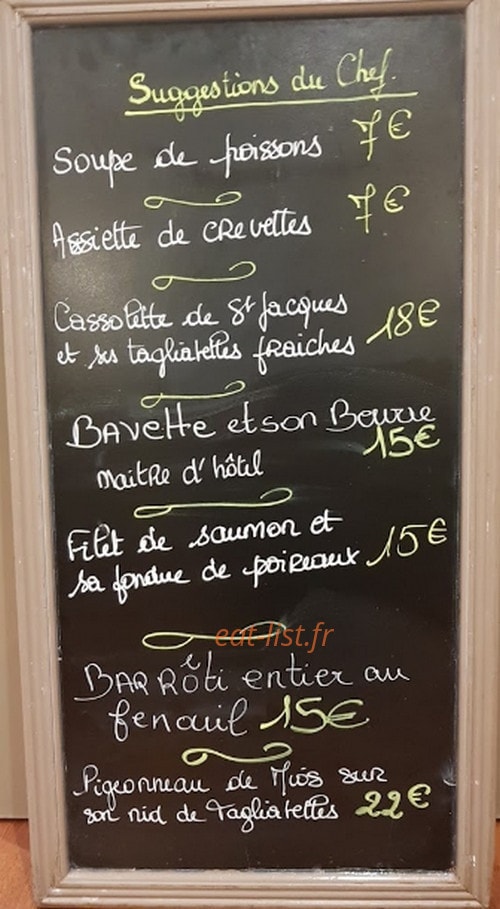 Suggestions du Chef.
Soupe de poissons 7€
Assiette de crevettes 7€
Cassolette de St Jacques
et ses tagliatelles fraiches 18€
Bavette et son Beurre
Maitre d'hôtel 15€
Filet de saumon et
sa fondue de poireaux 15€
eat-list.fr
BAR Rôti entier au
fenouil 15€
Pigeonneau de Mios sur
son nid de Tagliatelles 22€